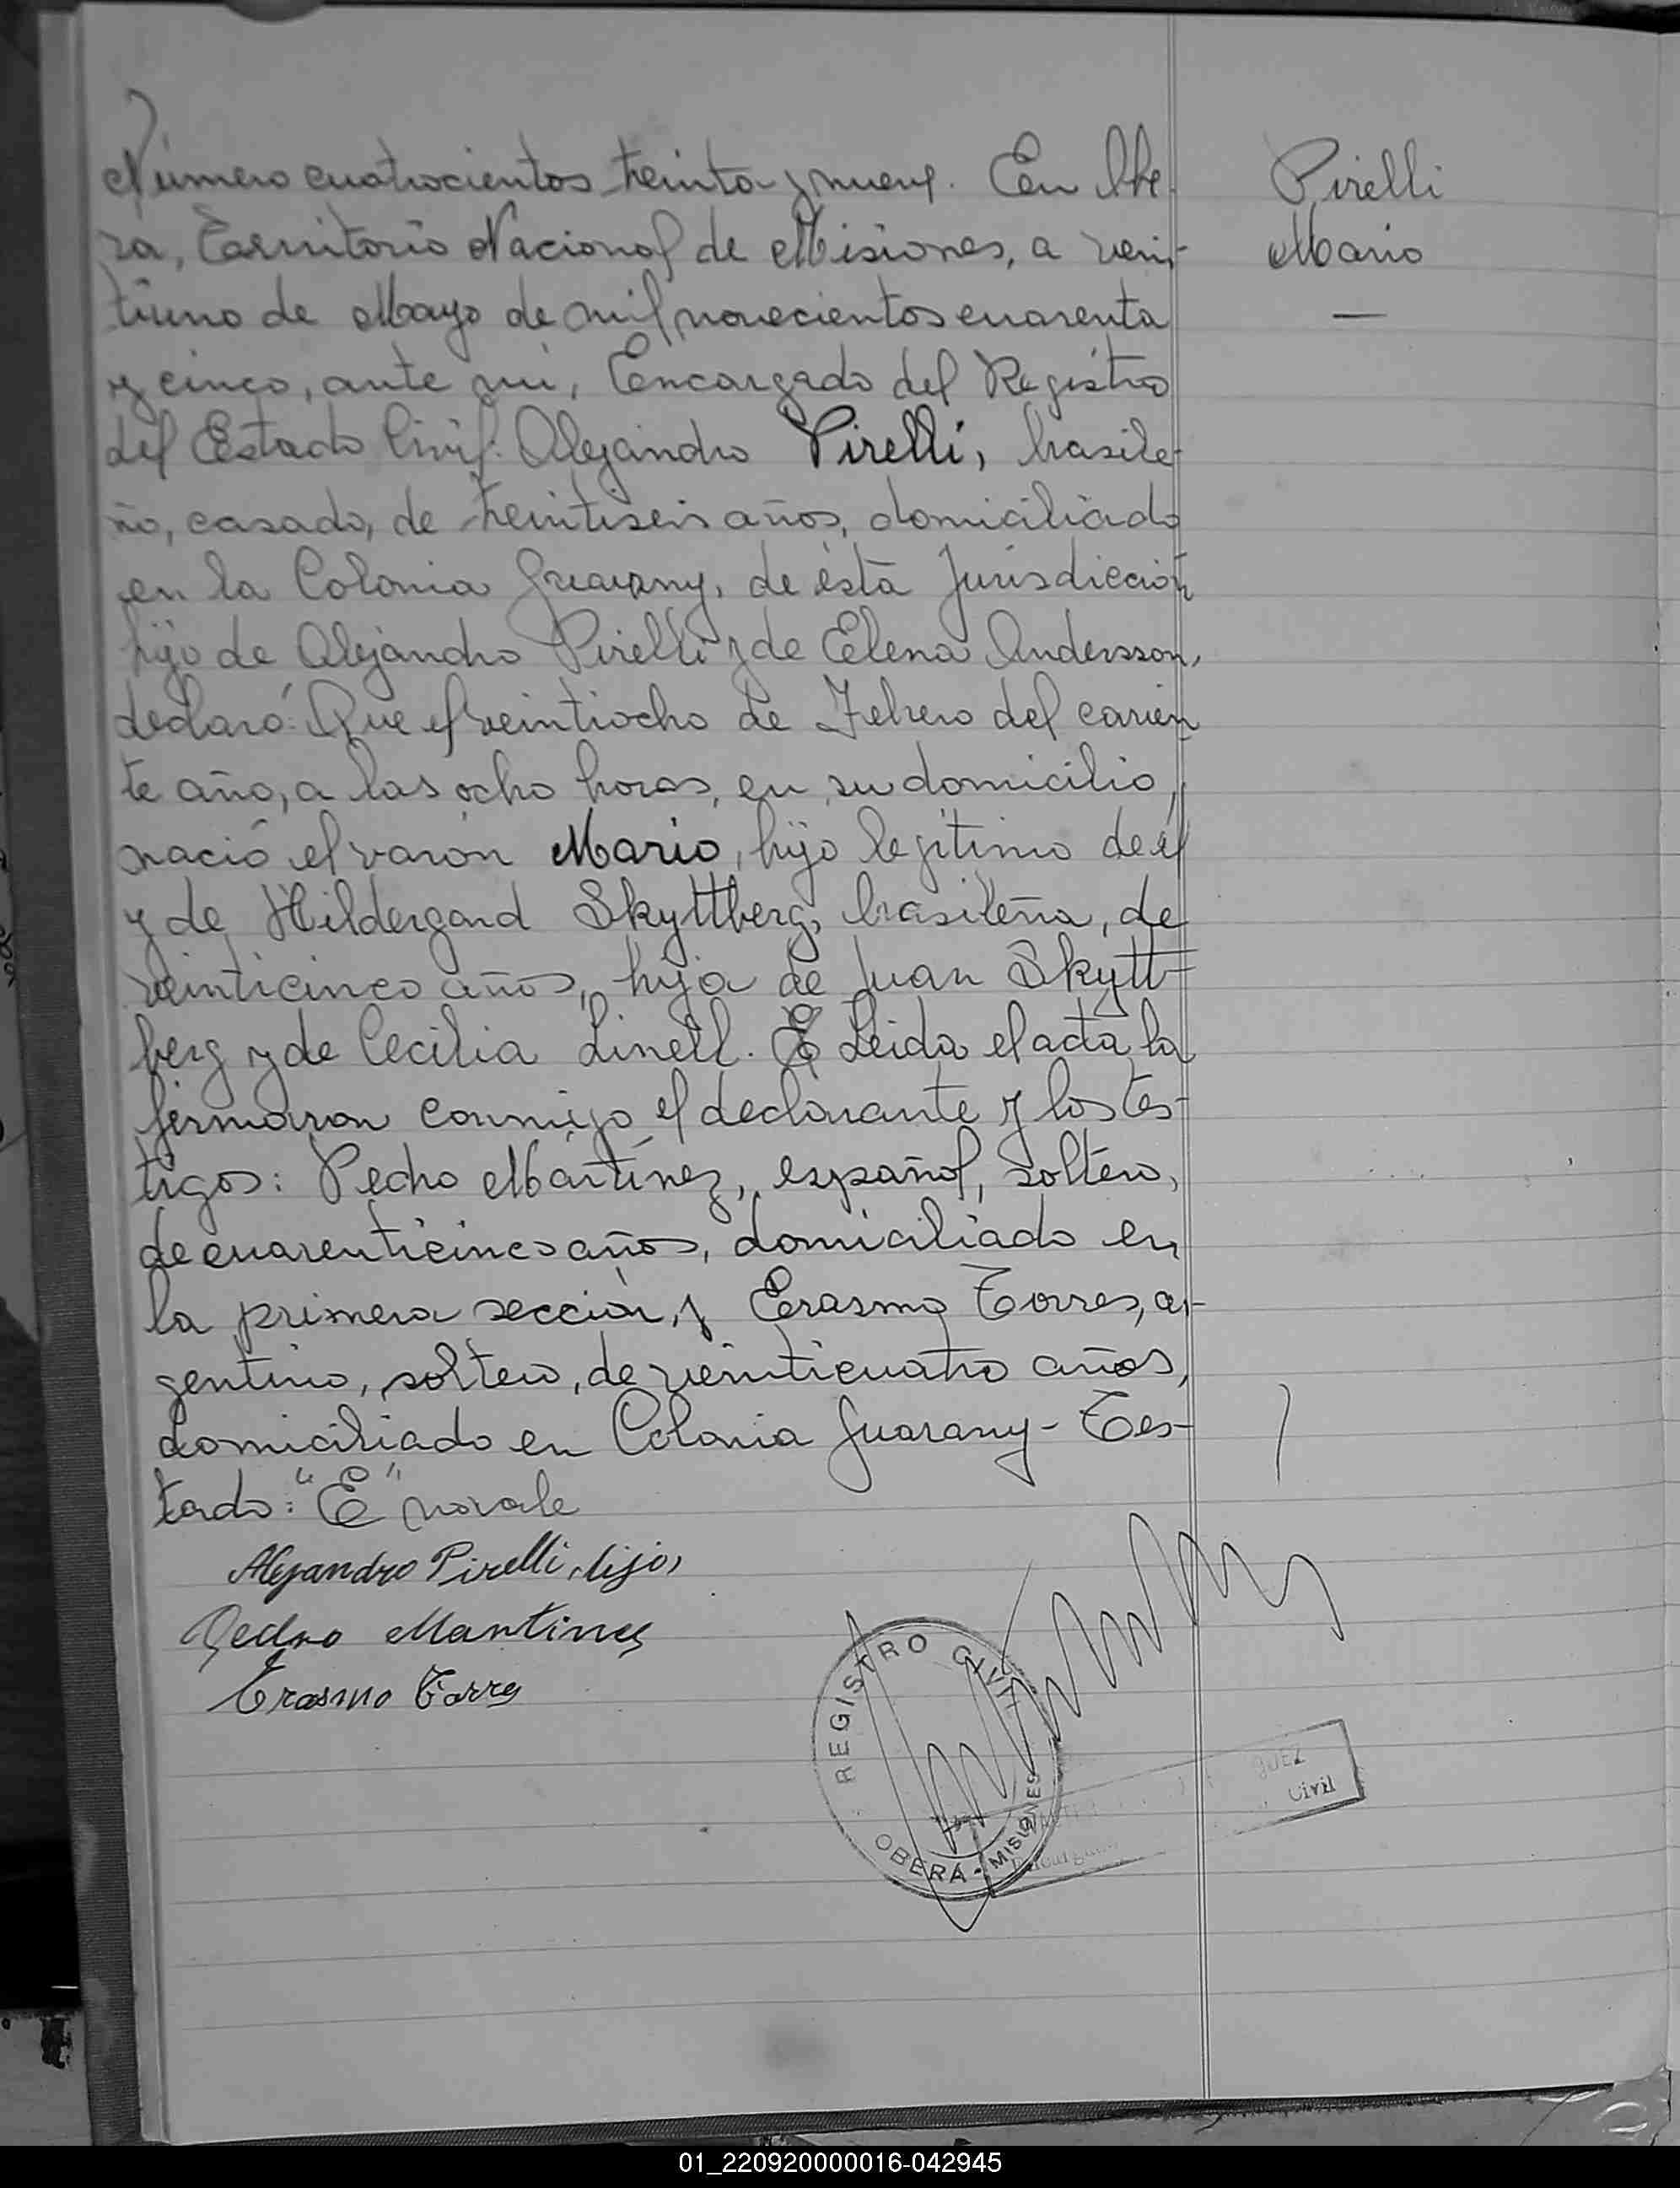 Número cuatrocientos treinta y nueve. En Obe-
rá, Territorio Nacional de Misiones, a vein-
tiuno de Mayo de mil novecientos cuarenta
y cinco, ante mí, Encargado del Registro
del Estado Civil: Alejandro Pirelli, brasile-
ño, casado, de treintiseis años, domiciliado
en la Colonia Guarany, de ésta Jurisdicción
hijo de Alejandro Pirelli y de Elena Andersson,
declaró: Que el veintiocho de Febrero del corrien
te año, a las ocho horas, en su domicilio,
nació el varón Mario, hijo legítimo de él
y de Hildergard Skyttberg, brasileña, de
veinticinco años, hija de Juan Skytt-
berg y de Cecilia Linell. E Leida el acta la
firmaron conmigo el declarante y los tes-
tigos: Pedro Martínez, español, soltero,
de cuarenticinco años, domiciliado en
la primera sección, y Erasmo Torres, ar-
gentino, soltero, de veinticuatro años,
domiciliado en Colonia Guarany - Tes-
tado: "E" no vale
Alejandro Pirelli, hijo,
Pedro Martinez
Erasmo Torres
Pirelli
Mario
—
REGISTRO CIVIL
OBERÁ - MISIONES
Civil
01_220920000016-042945